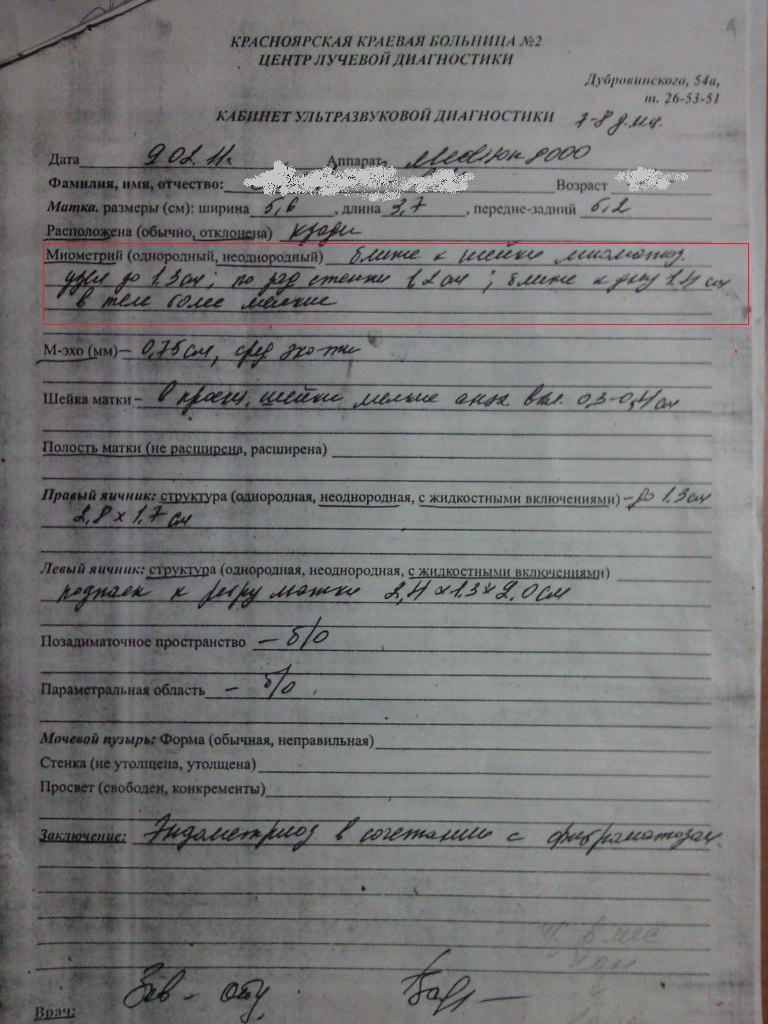 КРАСНОЯРСКАЯ КРАЕВАЯ БОЛЬНИЦА №2
ЦЕНТР ЛУЧЕВОЙ ДИАГНОСТИКИ
Дубровинского, 54а,
т. 26-53-51
КАБИНЕТ УЛЬТРАЗВУКОВОЙ ДИАГНОСТИКИ 7-8 д.мц.
Дата 9 02 11г. Аппарат
Фамилия, имя, отчество: Возраст
Матка. размеры (см): ширина 5,6, длина 3,7, передне-задний 5,2
Расположена (обычно, отклонена) кзади
Миометрий (однородный, неоднородный) ближе к шейке миоматоз.
узел до 1.3 см; по зад стенке 1,2 см; ближе к дну 1.4 см
в теле более мелкие
М-эхо (мм) – 0,75 см, сред эхо-ти
Шейка матки – в проекц. шейки мелкие анэх. вкл. 0,3-0,4 см
Полость матки (не расширена, расширена)
Правый яичник: структура (однородная, неоднородная, с жидкостными включениями) – до 1.3 см
2,8 х 1.7 см
Левый яичник: структура (однородная, неоднородная, с жидкостными включениями)
подпаен к ребру матки 2,4 х 1.3 х 2,0 см
Позадиматочное пространство – б/о
Параметральная область – б/о.
Мочевой пузырь: Форма (обычная, неправильная)
Стенка (не утолщена, утолщена)
Просвет (свободен, конкременты)
Заключение: Эндометриоз в сочетании с фиброматозом.
Зав – отд.
Врач: